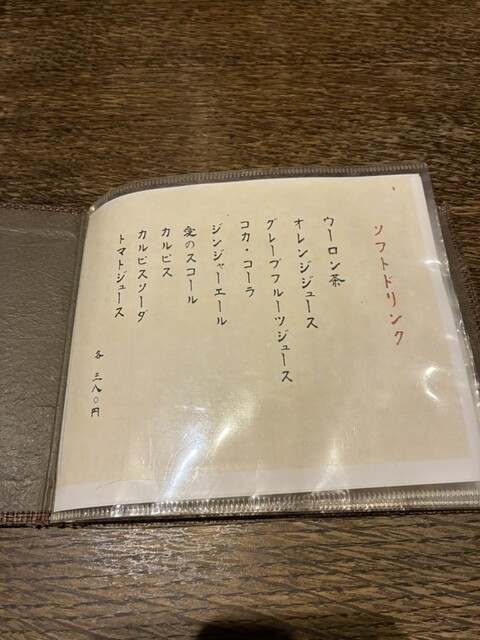 ソフトドリンク
ウーロン茶
オレンジジュース
グレープフルーツジュース
コカ・コーラ
ジンジャーエール
愛のスコール
カルピス
カルピスソーダ
トマトジュース
各 三八〇円